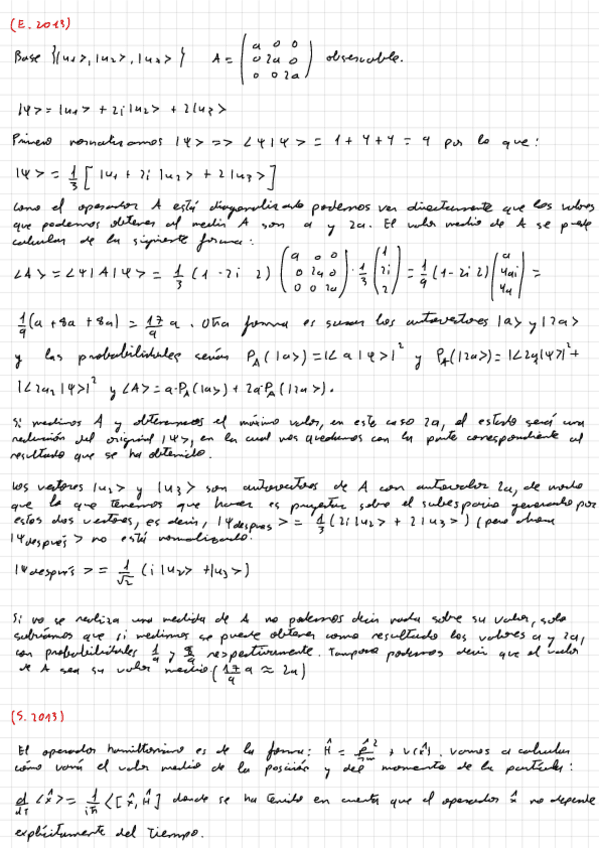 (E. 2013)
Base {|u1>, |u2>, |u3>} A = (a 0 0 0 2a 0 0 0 2a) observable.
|ψ> = |u1> + 2i|u2> + 2|u3>
Primero normalizamos |ψ> => <ψ|ψ> = 1 + 4 + 4 = 9 por lo que:
|ψ> = 1/3 [|u1 + 2i |u2> + 2|u3>]
Como el operador A está diagonalizado podemos ver directamente que los valores
que podemos obtener al medir A son a y 2a. El valor medio de A se puede
calcular de la siguiente forma:
<A> = <ψ|A|ψ> = 1/3 (1 -2i 2) (a 0 0 0 2a 0 0 0 2a) · 1/3 (1 2i 2) = 1/9 (1 -2i 2) (a 4ai 4a) =
1/9 (a + 8a + 8a) = 17/9 a. Otra forma es sumar los autovectores |a> y |2a>
y las probabilidades serían P_A(|a>) = |<a|ψ>|² y P_A(|2a>) = |<2a_1|ψ>|² +
|<2a_2|ψ>|² y <A> = a·P_A(|a>) + 2a·P_A(|2a>).
Si medimos A y obtenemos el máximo valor, en este caso 2a, el estado será una
reducción del original |ψ>, en la cual nos quedamos con la parte correspondiente al
resultado que se ha obtenido.
Los vectores |u2> y |u3> son autovectores de A con autovalor 2a, de modo
que lo que tenemos que hacer es proyectar sobre el subespacio generado por
estos dos vectores, es decir, |ψdespués> = 1/3 (2i|u2> + 2|u3>) (pero ahora
|ψdespués> no está normalizado.
|ψdespués> = 1/√2 (i|u2> + |u3>)
Si no se realiza una medida de A no podemos decir nada sobre su valor, solo
sabríamos que si medimos se puede obtener como resultado los valores a y 2a,
con probabilidades 1/9 y 8/9 respectivamente. Tampoco podemos decir que el valor
de A sea su valor medio (17/9 a ≈ 2a)
(S. 2013)
El operador hamiltoniano es de la forma: Ĥ = p̂²/2m + V(x̂). Vamos a calcular
cómo varía el valor medio de la posición y del momento de la partícula:
d/dt <x̂> = 1/iħ <[x̂, Ĥ] donde se ha tenido en cuenta que el operador x̂ no depende
explícitamente del tiempo.